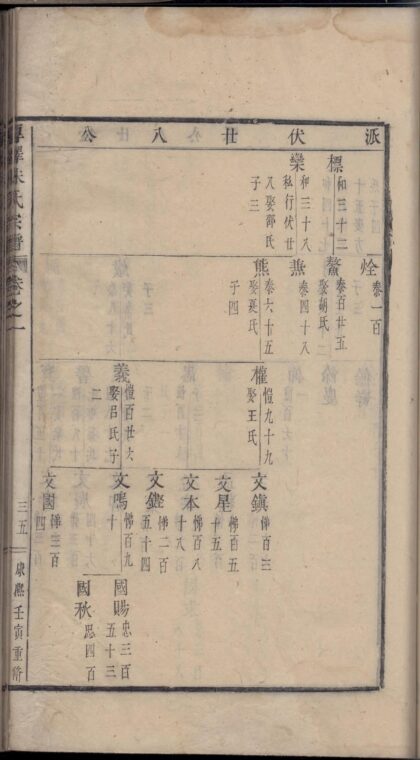 派伏廿八公
標 和三十二
欒 和三十八
私行伏廿
八娶邵氏
子三
烇 泰一百
鰲 泰百廿五
娶胡氏二
燕 泰四十八
熊 泰六十五
娶奚氏
子四
權 愷九十九
娶王氏
義 愷百廿六
娶呂氏子
二
文鎮 悌百三
文星 悌百五
十五
文本 悌百八
十八
文鏗 悌二百
五十四
文鳴 悌百九
十
文國 悌三百
四
國賜 忠三百
五十三
國秋 忠四百
朱氏宗譜
卷之一
三五
康熙壬寅重脩